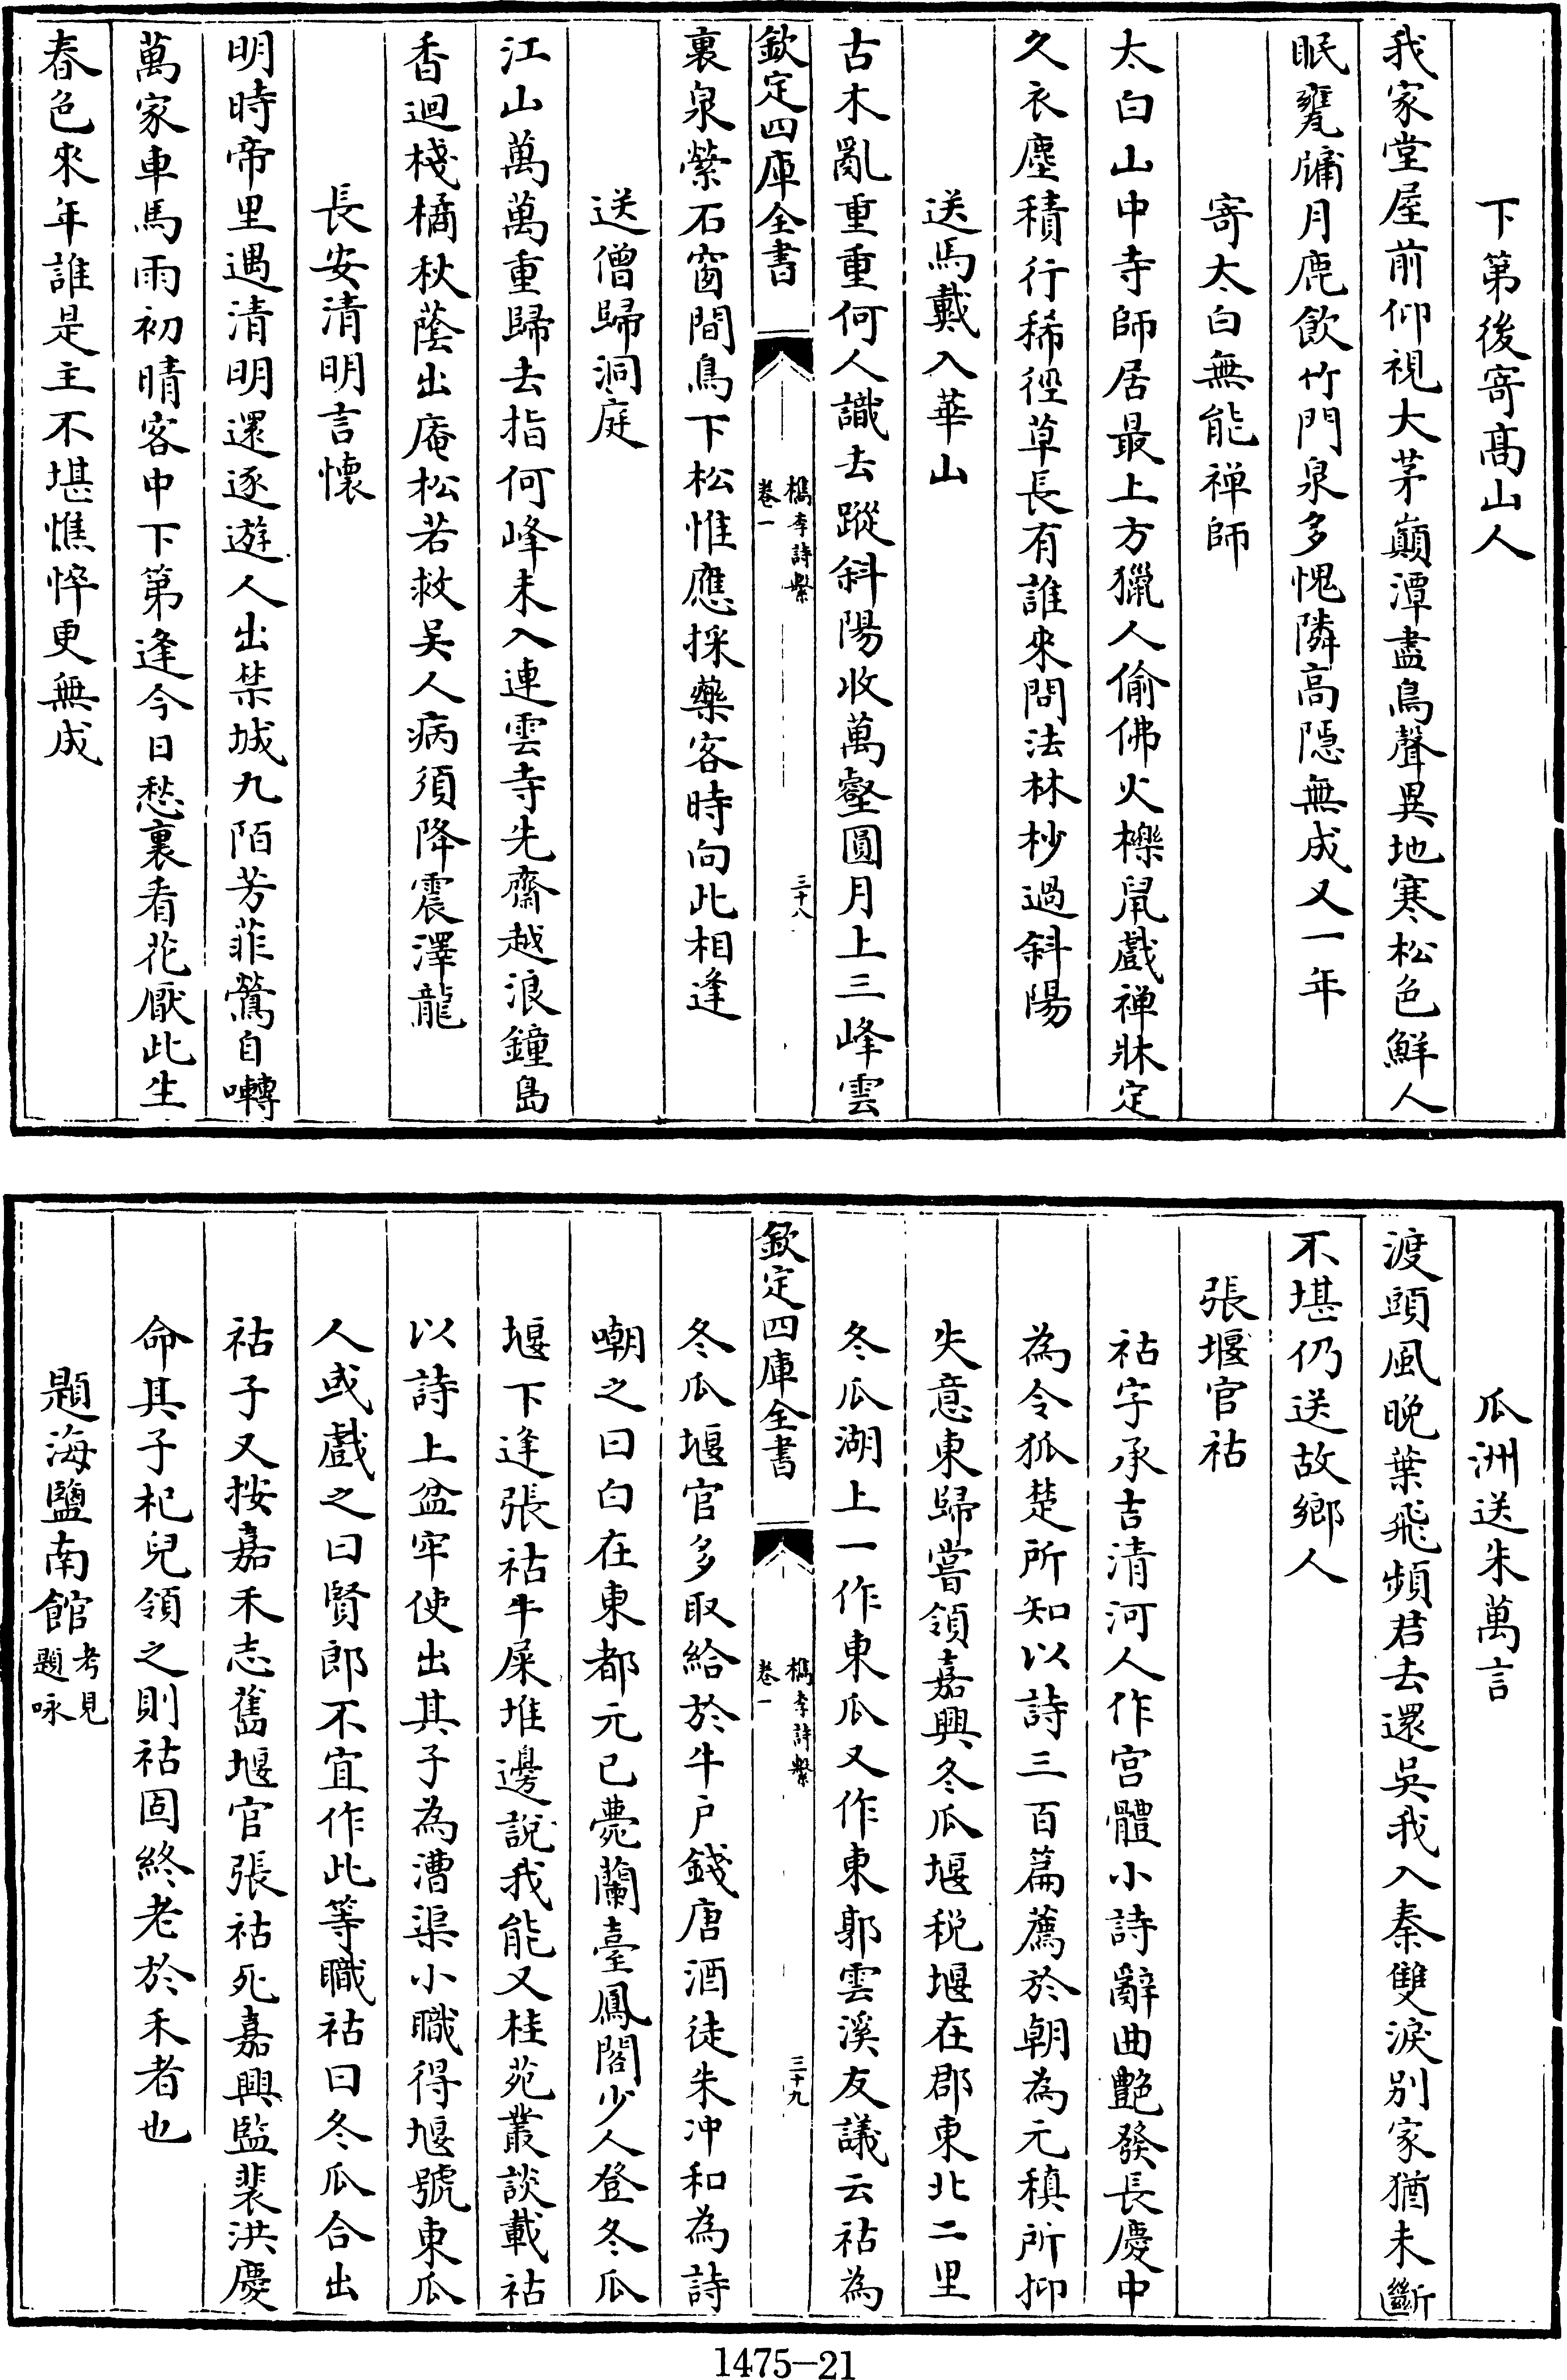 下第後寄高山人
我家堂屋前仰視大茅巔潭盡鳥聲異地寒松色鮮人
眠甕牖月鹿飲竹門泉多愧隣高隠無成又一年
寄太白無能禅師
太白山中寺師居最上方獵人偷佛火櫟鼠戲禅牀定
久衣塵積行稀徑草長有誰來問法林杪過斜陽
送馬戴入華山
古木亂重重何人識去蹤斜陽收萬壑圓月上三峰雲
欽定四庫全書
檇李詩繫
卷一
三十八
裏泉縈石窗間鳥下松惟應採藥客時向此相逢
送僧歸洞庭
江山萬萬重歸去指何峰未入連雲寺先齋越浪鐘島
香迴棧橘秋蔭出庵松若救吴人病須降震澤龍
長安清明言懷
明時帝里遇清明還逐遊人出禁城九陌芳菲鶯自囀
萬家車馬雨初晴客中下第逢今日愁裏看花厭此生
春色來年誰是主不堪憔悴更無成
瓜洲送朱萬言
渡頭風晚葉飛頻君去還吳我入秦雙淚别家猶未斷
不堪仍送故鄉人
張堰官祜
祜字承吉清河人作宫體小詩辭曲艷發長慶中
為令狐楚所知以詩三百篇薦於朝為元稹所抑
失意東歸嘗領嘉興冬瓜堰税堰在郡東北二里
冬瓜湖上一作東瓜又作東郭雲溪友議云祜為
欽定四庫全書
檇李詩繫
卷一
三十九
冬瓜堰官多取給於牛户錢唐酒徒朱冲和為詩
嘲之曰白在東都元已薨蘭臺鳳閣少人登冬瓜
堰下逢張祜牛屎堆邊說我能又桂苑叢談載祜
以詩上盆牢使出其子為漕渠小職得堰號東瓜
人或戲之曰賢郎不宜作此等職祜曰冬瓜合出
祜子又按嘉禾志舊堰官張祜死嘉興監裴洪慶
命其子杞兒領之則祜固終老於禾者也
題海鹽南館考見題咏
1475-21